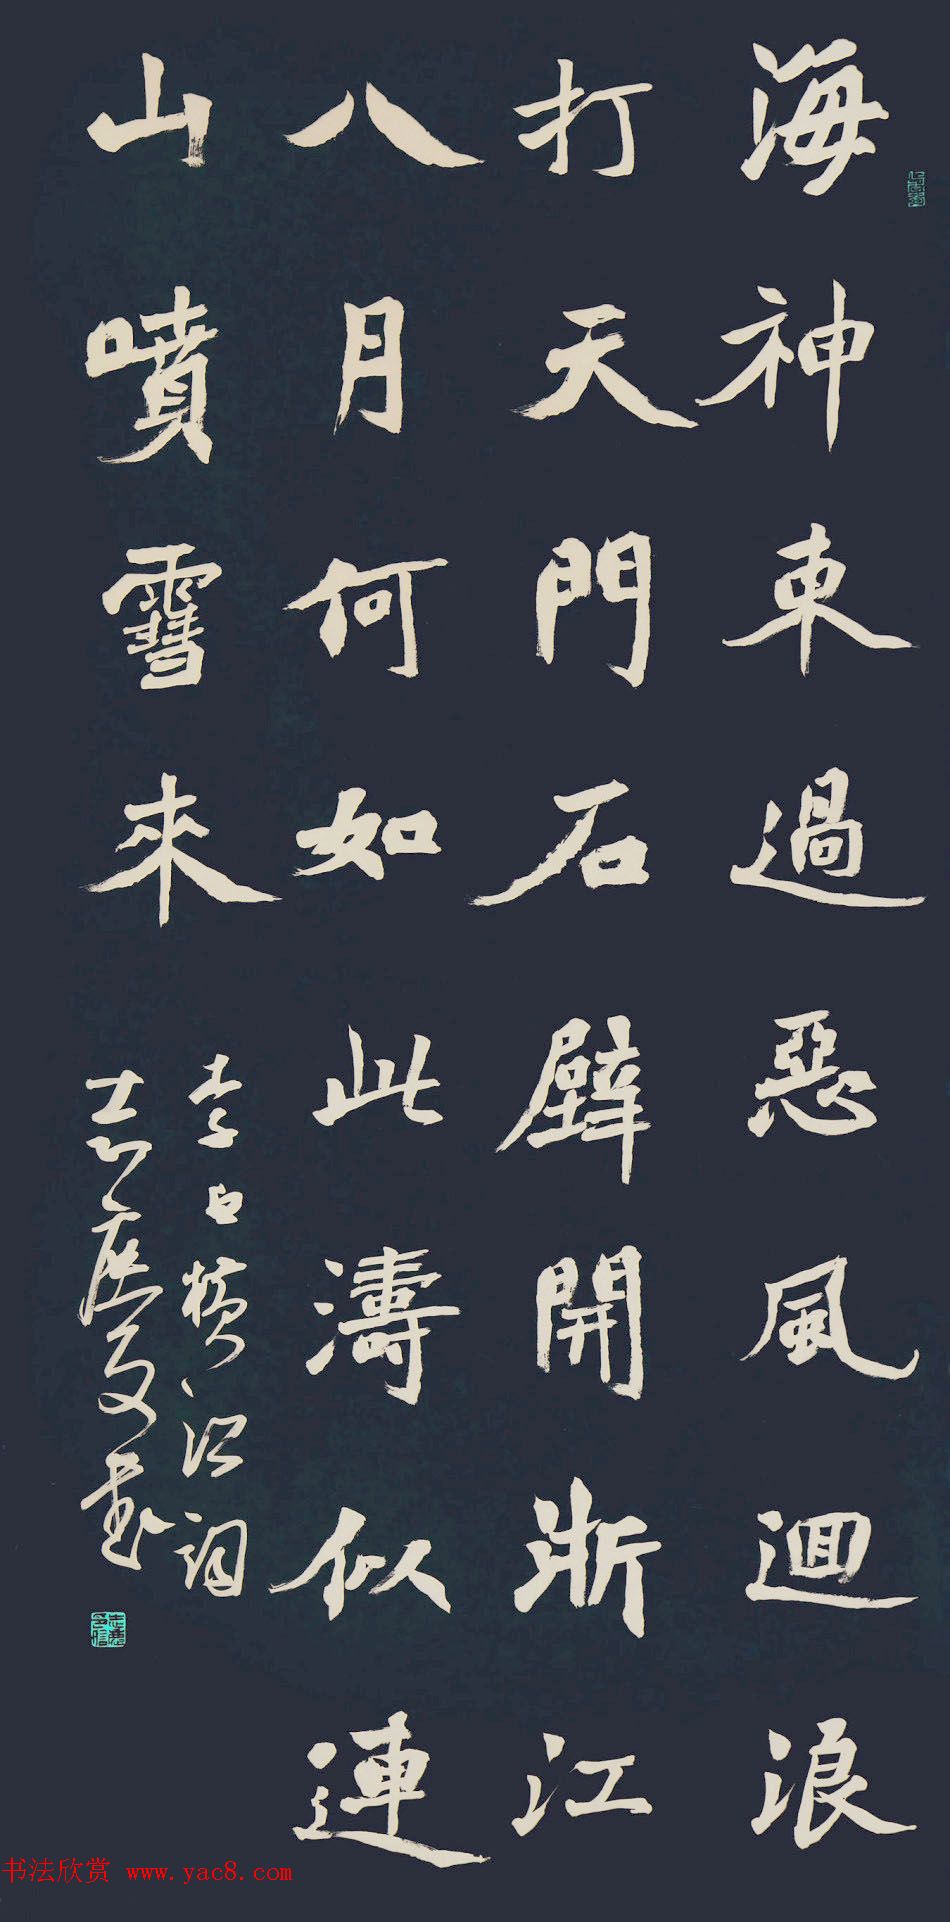 海神東過惡風迴浪
打天門石壁開浙江
八月何如此濤似連
山噴雪來
李白橫江詞
书法欣赏 www.yac8.com